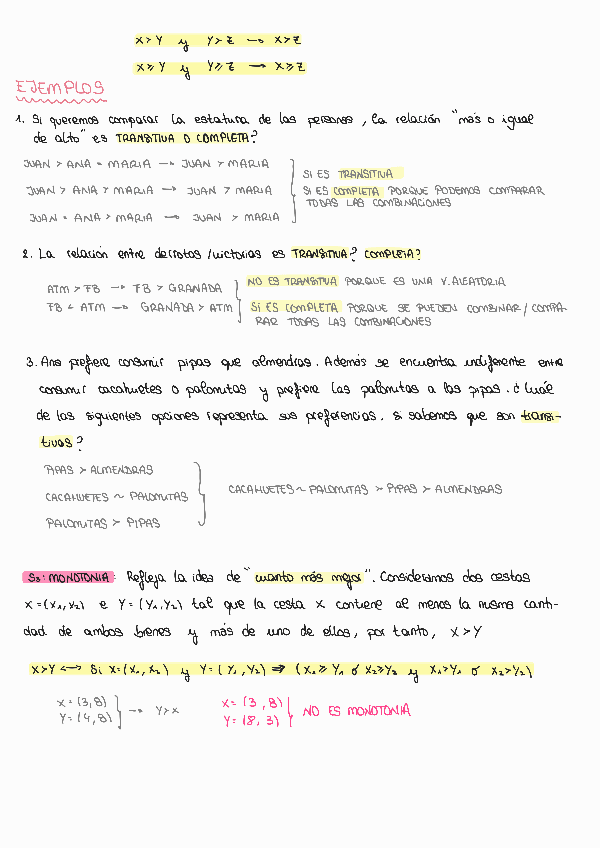 X>Y y Y>Z → X>Z
X≥Y y Y≥Z → X≥Z
EJEMPLOS
1. Si queremos comparar la estatura de las personas, la relación "más o igual
de alto" es TRANSITIVA O COMPLETA?
JUAN > ANA = MARIA → JUAN > MARIA
JUAN > ANA > MARIA → JUAN > MARIA
JUAN = ANA > MARIA → JUAN > MARIA
SI ES TRANSITIVA
SI ES COMPLETA PORQUE PODEMOS COMPARAR
TODAS LAS COMBINACIONES
2. La relación entre derrotas/victorias es TRANSITIVA? COMPLETA?
ATM > FB → FB > GRANADA
FB < ATM → GRANADA > ATM
NO ES TRANSITIVA PORQUE ES UNA V. ALEATORIA
SI ES COMPLETA PORQUE SE PUEDEN COMBINAR/COMPA-
RAR TODAS LAS COMBINACIONES
3. Ana prefiere consumir pipas que almendras. Además se encuentra indiferente entre
consumir cacahuetes o palomitas y prefiere las palomitas a las pipas. ¿Cuál
de las siguientes opciones representa sus preferencias, si sabemos que son transi-
tivas?
PIPAS > ALMENDRAS
CACAHUETES ~ PALOMITAS
PALOMITAS > PIPAS
CACAHUETES ~ PALOMITAS > PIPAS > ALMENDRAS
S3: MONOTONIA: Refleja la idea de "cuanto más mejor". Consideramos dos cestas
X=(X1,X2) e Y=(Y1,Y2) tal que la cesta X contiene al menos la misma canti-
dad de ambos bienes y más de uno de ellos, por tanto, X>Y
X>Y ⟷ Si X=(X1,X2) y Y=(Y1,Y2) ⇒ (X1≥Y1 ó X2≥Y2 y X1>Y1 ó X2>Y2)
X=(3,8)
Y=(4,8)
→ Y>X
X=(3,8)
Y=(8,3)
NO ES MONOTONIA